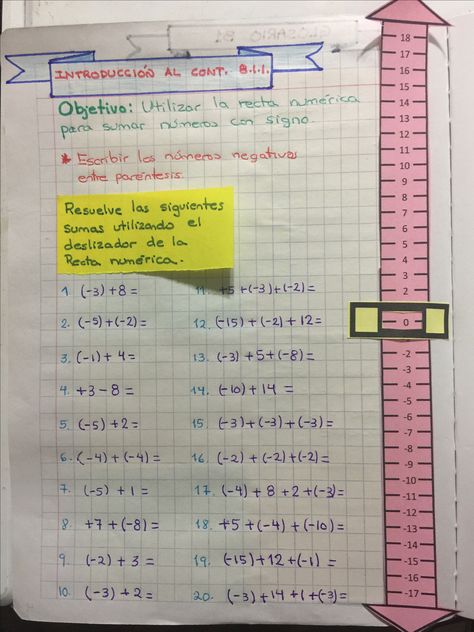 INTRODUCCIÓN AL CONT. 8.1.1.
Objetivo: Utilizar la recta numérica
para sumar números con signo.
* Escribir los números negativos
entre paréntesis.
Resuelve las siguientes
sumas utilizando el
deslizador de la
Recta numérica.
1. (-3) + 8 =
2. (-5) + (-2) =
3. (-1) + 4 =
4. +3 - 8 =
5. (-5) + 2 =
6. (-4) + (-4) =
7. (-5) + 1 =
8. +7 + (-8) =
9. (-2) + 3 =
10. (-3) + 2 =
11. +5 + (-3) + (-2) =
12. (-15) + (-2) + 12 =
13. (-3) + 5 + (-8) =
14. (-10) + 14 =
15. (-3) + (-3) + (-3) =
16. (-2) + (-2) + (-2) =
17. (-4) + 8 + 2 + (-3) =
18. +5 + (-4) + (-10) =
19. (-15) + 12 + (-1) =
20. (-3) + 14 + 1 + (-3) =
18
17
16
15
14
13
12
11
10
9
8
7
6
5
4
3
2
0
-2
-3
-4
-5
-6
-7
-8
-9
-10
-11
-12
-13
-14
-15
-16
-17